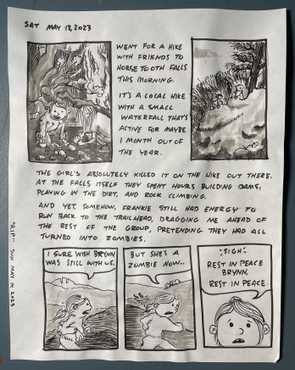 SAT MAY 13, 2023
WENT FOR A HIKE
WITH FRIENDS TO
HORSETOOTH FALLS
THIS MORNING.
IT'S A LOCAL HIKE
WITH A SMALL
WATERFALL THAT'S
ACTIVE FOR MAYBE
1 MONTH OUT OF
THE YEAR.
THE GIRL'S ABSOLUTELY KILLED IT ON THE HIKE OUT THERE.
AT THE FALLS ITSELF THEY SPENT HOURS BUILDING DAMS,
PLAYING IN THE DIRT, AND ROCK CLIMBING.
AND YET, SOMEHOW, FRANKIE STILL HAD ENERGY TO
RUN BACK TO THE TRAILHEAD, DRAGGING ME AHEAD OF
THE REST OF THE GROUP, PRETENDING THEY HAD ALL
TURNED INTO ZOMBIES.
I SURE WISH BRYNN
WAS STILL WITH US.
BUT SHE'S A
ZOMBIE NOW..
:SIGH:
REST IN PEACE
BRYNN,
REST IN PEACE
"R.I.P." SUN MAY 14 2023